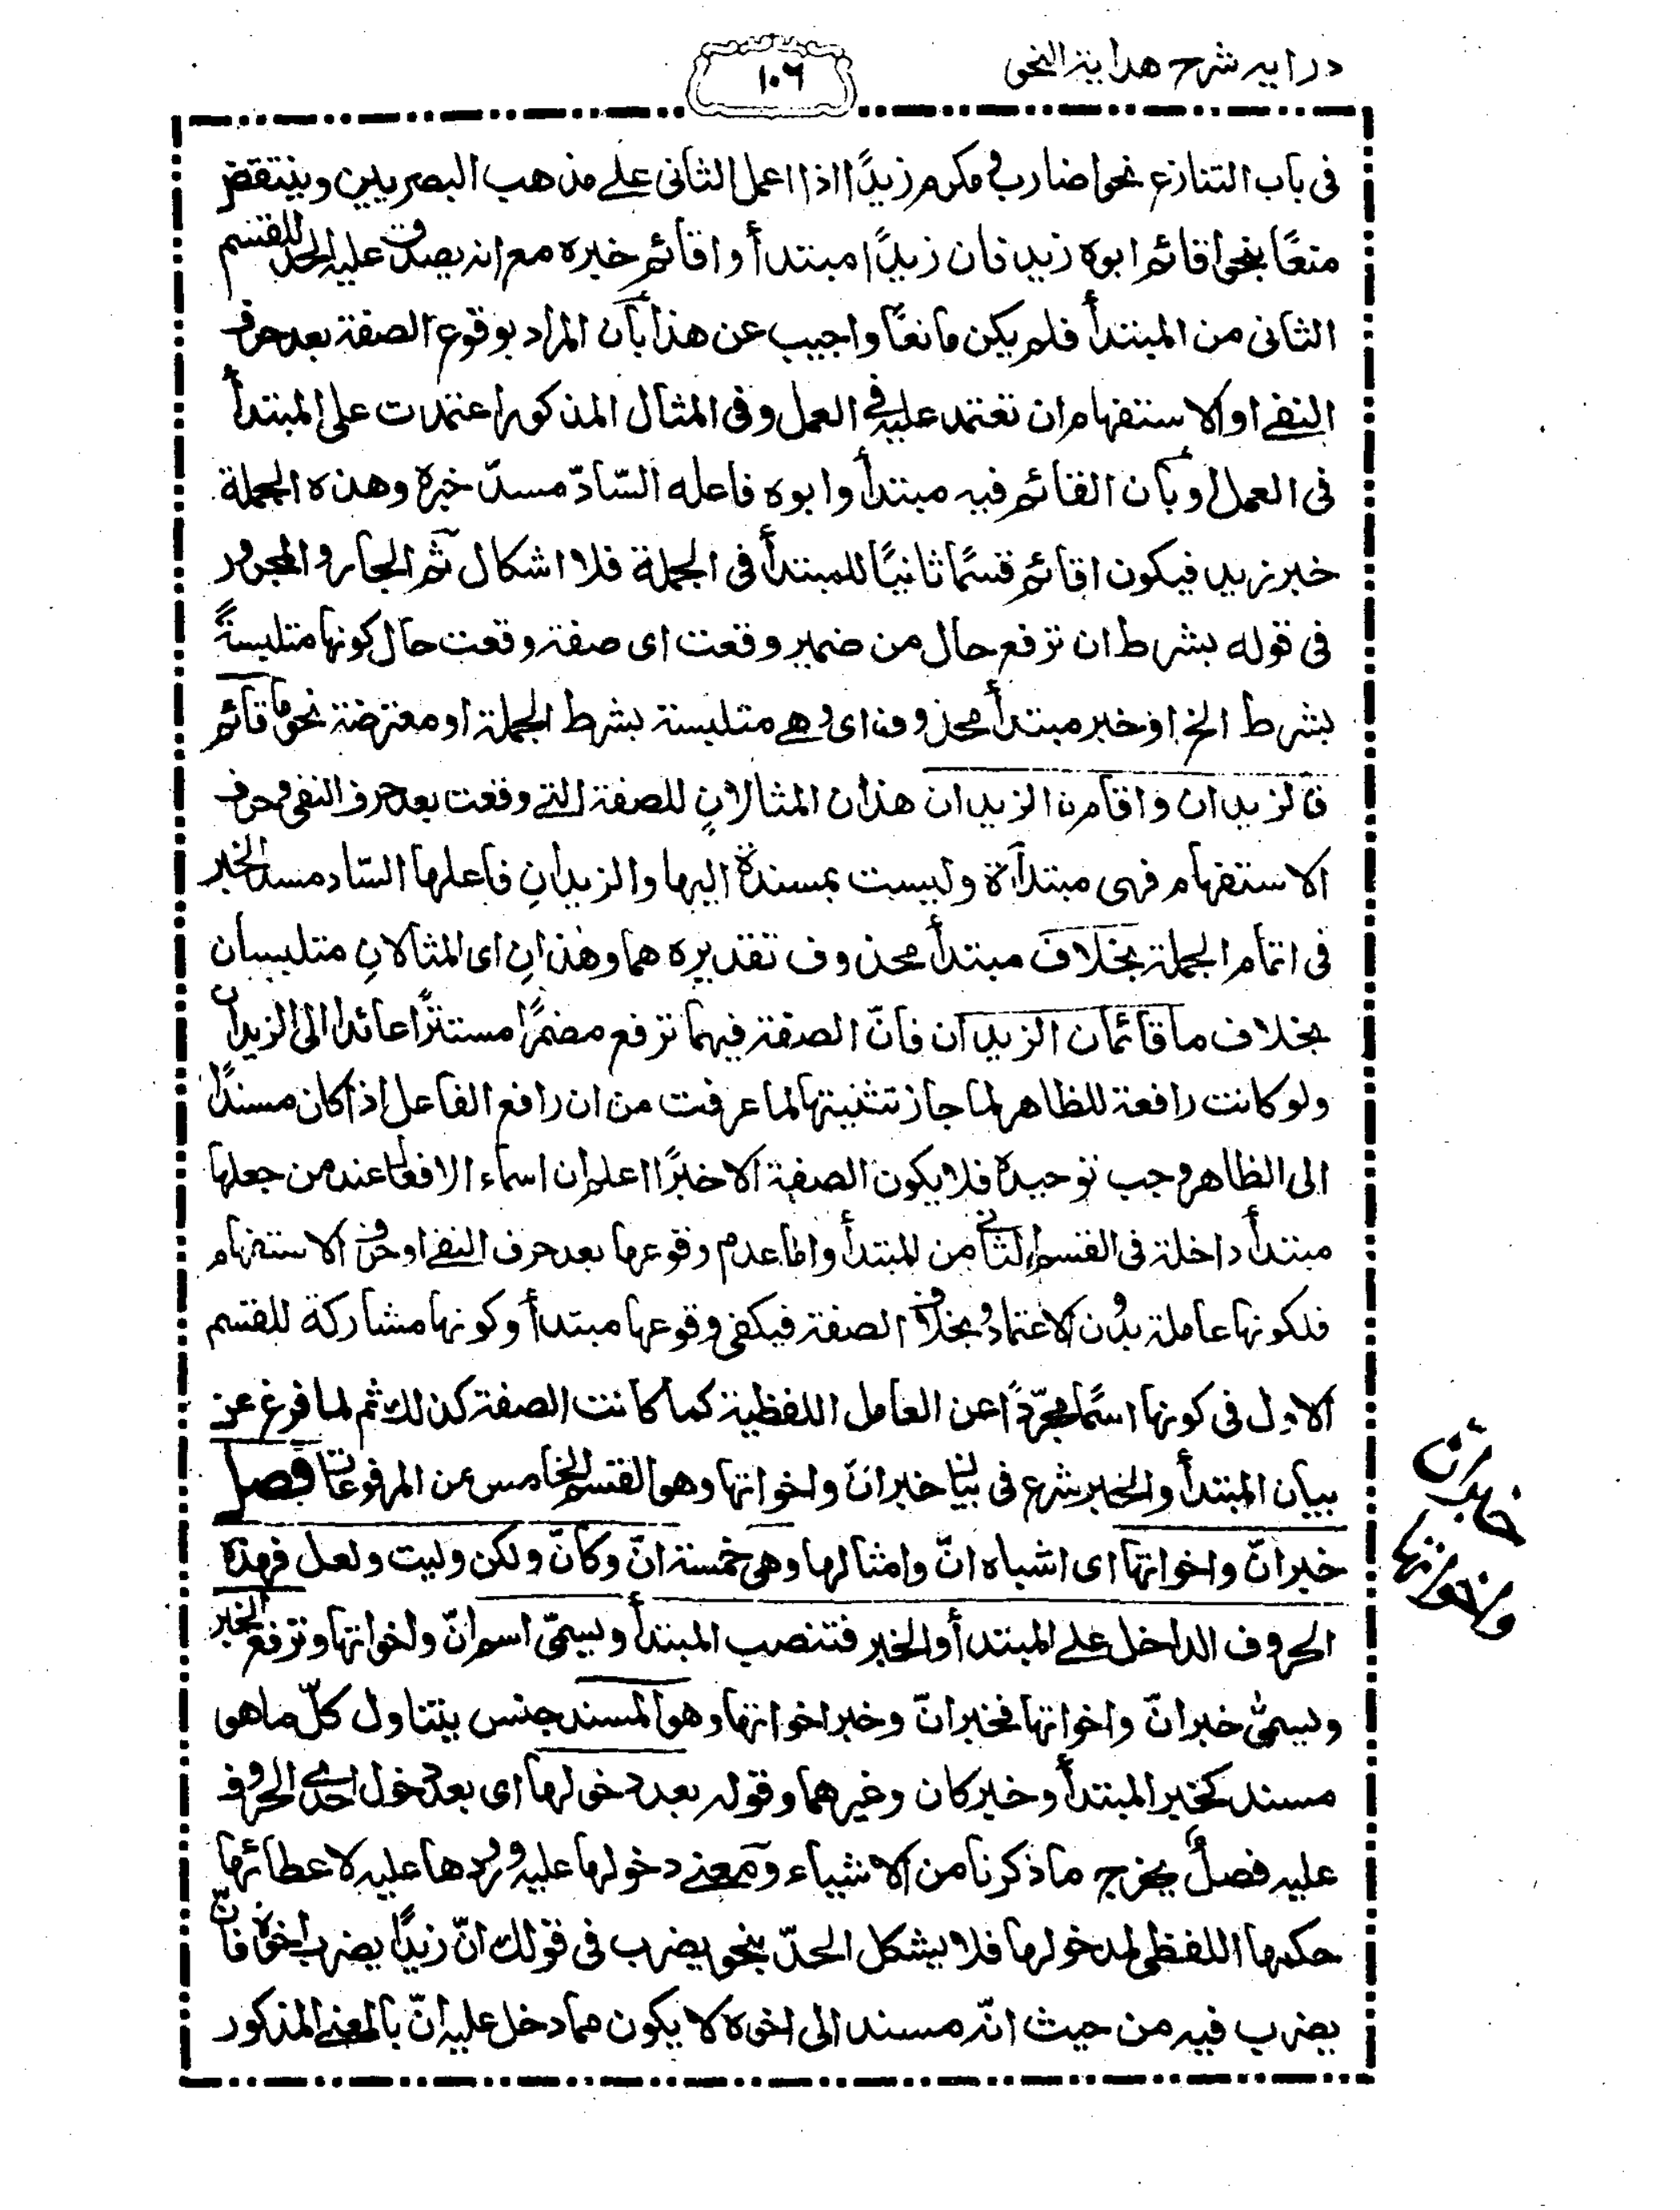 درايہ شرح هداية النحو
١٠٦
فى باب التنازع نحو اضارب و مكرم زيدًا اذا اعمل الثانى على مذهب البصريين وينتقض
منعًا بنحو اقائم ابوه زيد فان زيدًا مبتدأ و اقائم خبره مع انه يصدق عليه الحد للقسم
الثانى من المبتدأ فلم يكن مانعًا واجيب عن هذا بأن المراد بوقوع الصفة بعد حرف
النفى او الاستفهام ان تعتمد عليه فى العمل وفى المثال المذكور اعتمدت على المبتدأ
فى العمل او بأن القائم فيه مبتدأ وابوه فاعله السّادّ مسدّ خبره وهذه الجملة
خبر زيد فيكون اقائم قسمًا ثانيًا للمبتدأ فى الجملة فلا اشكال ثم الجار والمجرور
فى قوله بشرط ان ترفع حال من ضمير وقعت اى صفة وقعت حال كونها متلبسةً
بشرط الخ او خبر مبتدأ محذوف اى وهى متلبسة بشرط الجملة او معترضة نحو ما قائم
ن الزيدان واقائم ن الزيدان هذان المثالانِ للصفة التى وقعت بعد حرف النفى وحرف
الاستفهام فهى مبتدأة وليست بمسندة اليها والزيدانِ فاعلها السّاد مسد الخبر
فى اتمام الجملة بخلاف مبتدأ محذوف تقديره هما وهذانِ اى المثالانِ متلبسان
بخلاف ما قائمان الزيدان فانّ الصفة فيهما ترفع مضمرًا مستترًا عائدا الى الزيدان
ولو كانت رافعة للظاهر لما جاز تثنيتها لما عرفت من ان رافع الفاعل اذا كان مسندًا
الى الظاهر وجب توحيده فلا يكون الصفة الا خبرًا اعلم ان اسماء الافعال عند من جعلها
مبتدأ داخلة فى القسم الثانى من المبتدأ واما عدم وقوعها بعد حرف النفى او حرف الاستفهام
فلكونها عاملة بدون الاعتماد بخلاف الصفة فيكفى وقوعها مبتدأ وكونها مشاركة للقسم
الاول فى كونها اسمًا مجرّدًا عن العامل اللفظية كما كانت الصفة كذلك ثم لما فرغ عن
بيان المبتدأ والخبر شرع فى بيان خبر انّ واخواتها وهو القسم الخامس من المرفوعات فصل
خبر انّ واخواتها اى اشباه انّ وامثالها وهى خمسة انّ وكأنّ ولكن وليت ولعل فهذه
الحروف الداخل على المبتدأ والخبر فتنصب المبتدأ ويسمّى اسم انّ واخواتها وترفع الخبر
ويسمّى خبر انّ واخواتها فخبر انّ وخبر اخواتها وهو المسند جنس يتناول كلّ ما هو
مسند كخبر المبتدأ وخبر كان وغيرهما وقوله بعد دخولها اى بعد دخول احدى الحروف
عليه فصلٌ يخرج ما ذكرنا من الاشياء ومعنى دخولها عليه ورودها عليه لاعطائها
حكمها اللفظى لمدخولها فلا يشكل الحدّ بنحو يضرب فى قولك انّ زيدًا يضرب اخوه فانّ
يضرب فيه من حيث انّه مسند الى اخوه لا يكون مما دخل عليه انّ بالمعنى المذكور
خبر ان
واخواتها